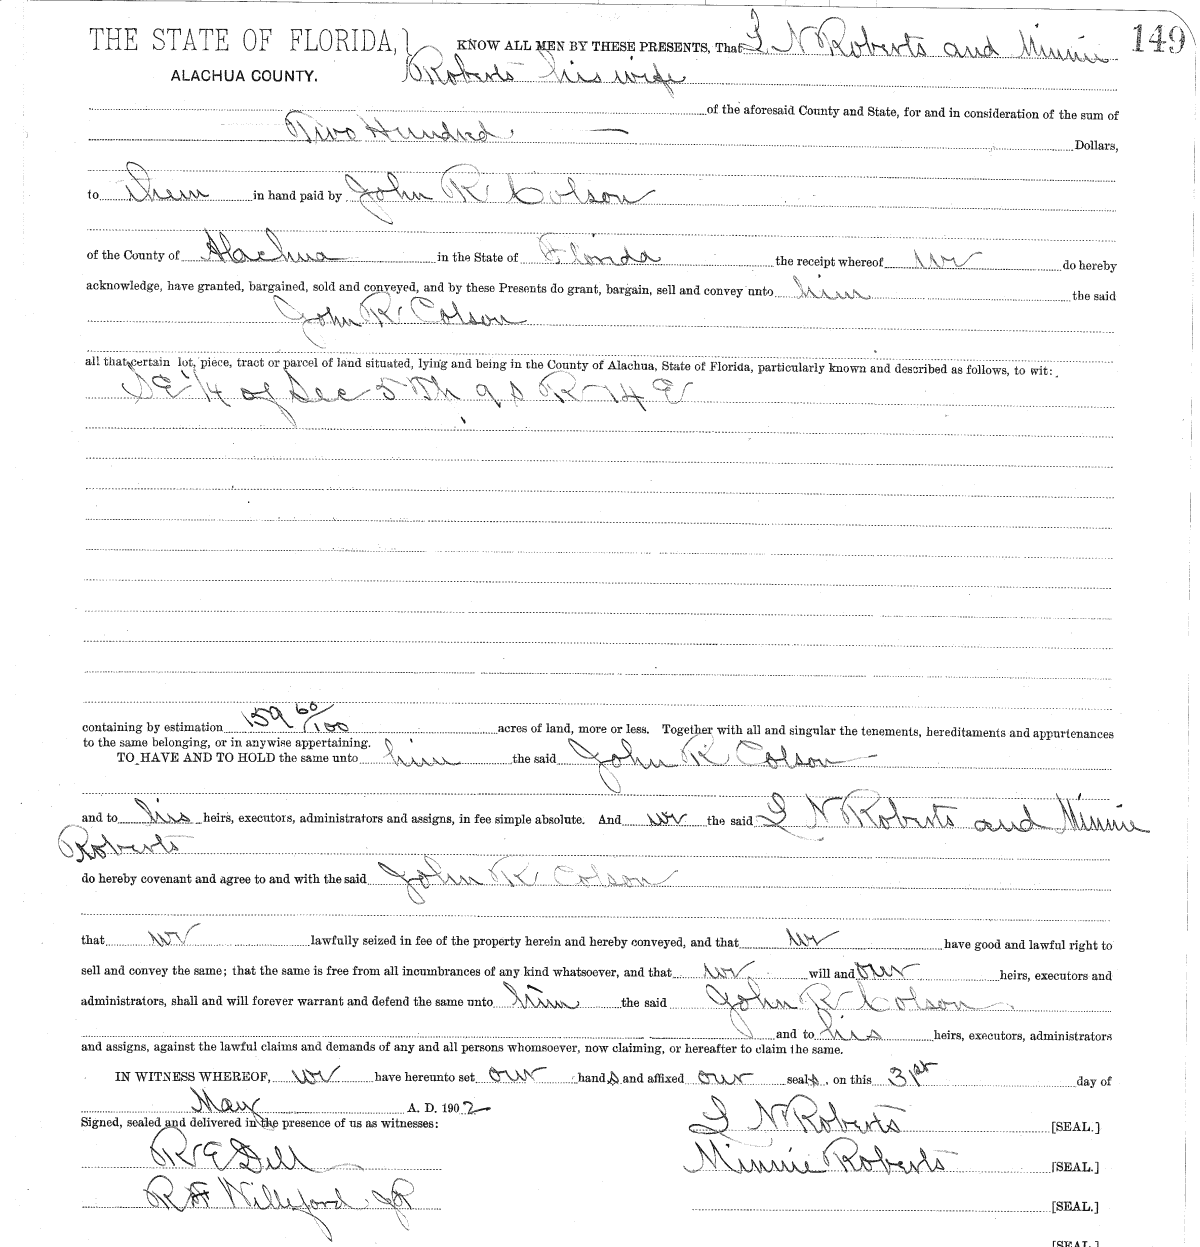 149
THE STATE OF FLORIDA,} KNOW ALL MEN BY THESE PRESENTS, That I N Roberts and Minnie
ALACHUA COUNTY. Roberts his wife
of the aforesaid County and State, for and in consideration of the sum of
Two Hundred Dollars,
to them in hand paid by John R. Colson
of the County of Alachua in the State of Florida the receipt whereof we do hereby
acknowledge, have granted, bargained, sold and conveyed, and by these Presents do grant, bargain, sell and convey unto him the said
John R. Colson
all that certain lot, piece, tract or parcel of land situated, lying and being in the County of Alachua, State of Florida, particularly known and described as follows, to wit:
SE 1/4 of Sec 5 Th 9 S R 14 E
containing by estimation 159 60/100 acres of land, more or less. Together with all and singular the tenements, hereditaments and appurtenances
to the same belonging, or in anywise appertaining.
TO HAVE AND TO HOLD the same unto him the said John R. Colson
and to his heirs, executors, administrators and assigns, in fee simple absolute. And we the said I N Roberts and Minnie
Roberts
do hereby covenant and agree to and with the said John R Colson
that we lawfully seized in fee of the property herein and hereby conveyed, and that we have good and lawful right to
sell and convey the same; that the same is free from all incumbrances of any kind whatsoever, and that we will and our heirs, executors and
administrators, shall and will forever warrant and defend the same unto him the said John R Colson
and to his heirs, executors, administrators
and assigns, against the lawful claims and demands of any and all persons whomsoever, now claiming, or hereafter to claim the same.
IN WITNESS WHEREOF, we have hereunto set our hands and affixed our seals, on this 31st day of
May A. D. 1902
Signed, sealed and delivered in the presence of us as witnesses: I N Roberts [SEAL.]
R E Dell Minnie Roberts [SEAL.]
R F Willeford JP [SEAL.]
[SEAL.]